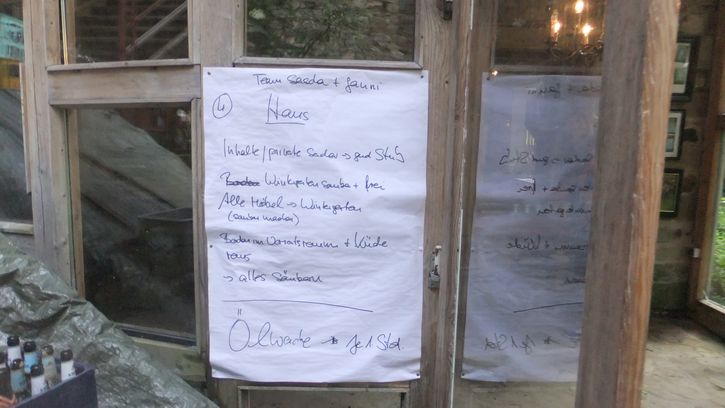 Team Sascha + Janni
4
Haus
Inhalte/private Sachen → 
Wintergarten sauber + frei
Alle Möbel → Wintergarten
(sauber machen)
Boden im Vorratsraum + Küche
raus
→ alles säubern
Ölwache → je 1 Std.